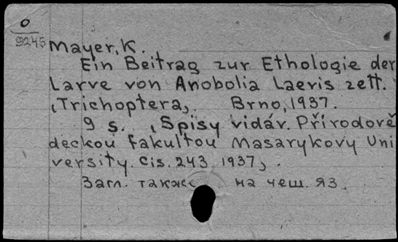 0
9245
Mayer, K.
Ein Beitrag zur Ethologie der
Larve von Anobolia Laevis zett.
(Trichoptera). Brno, 1937.
9 s. (Spisy vidáv. Přírodově
deckou fakultou Masarykovy Uni
versity. Cis. 243. 1937).
Загл. также на чеш. яз.